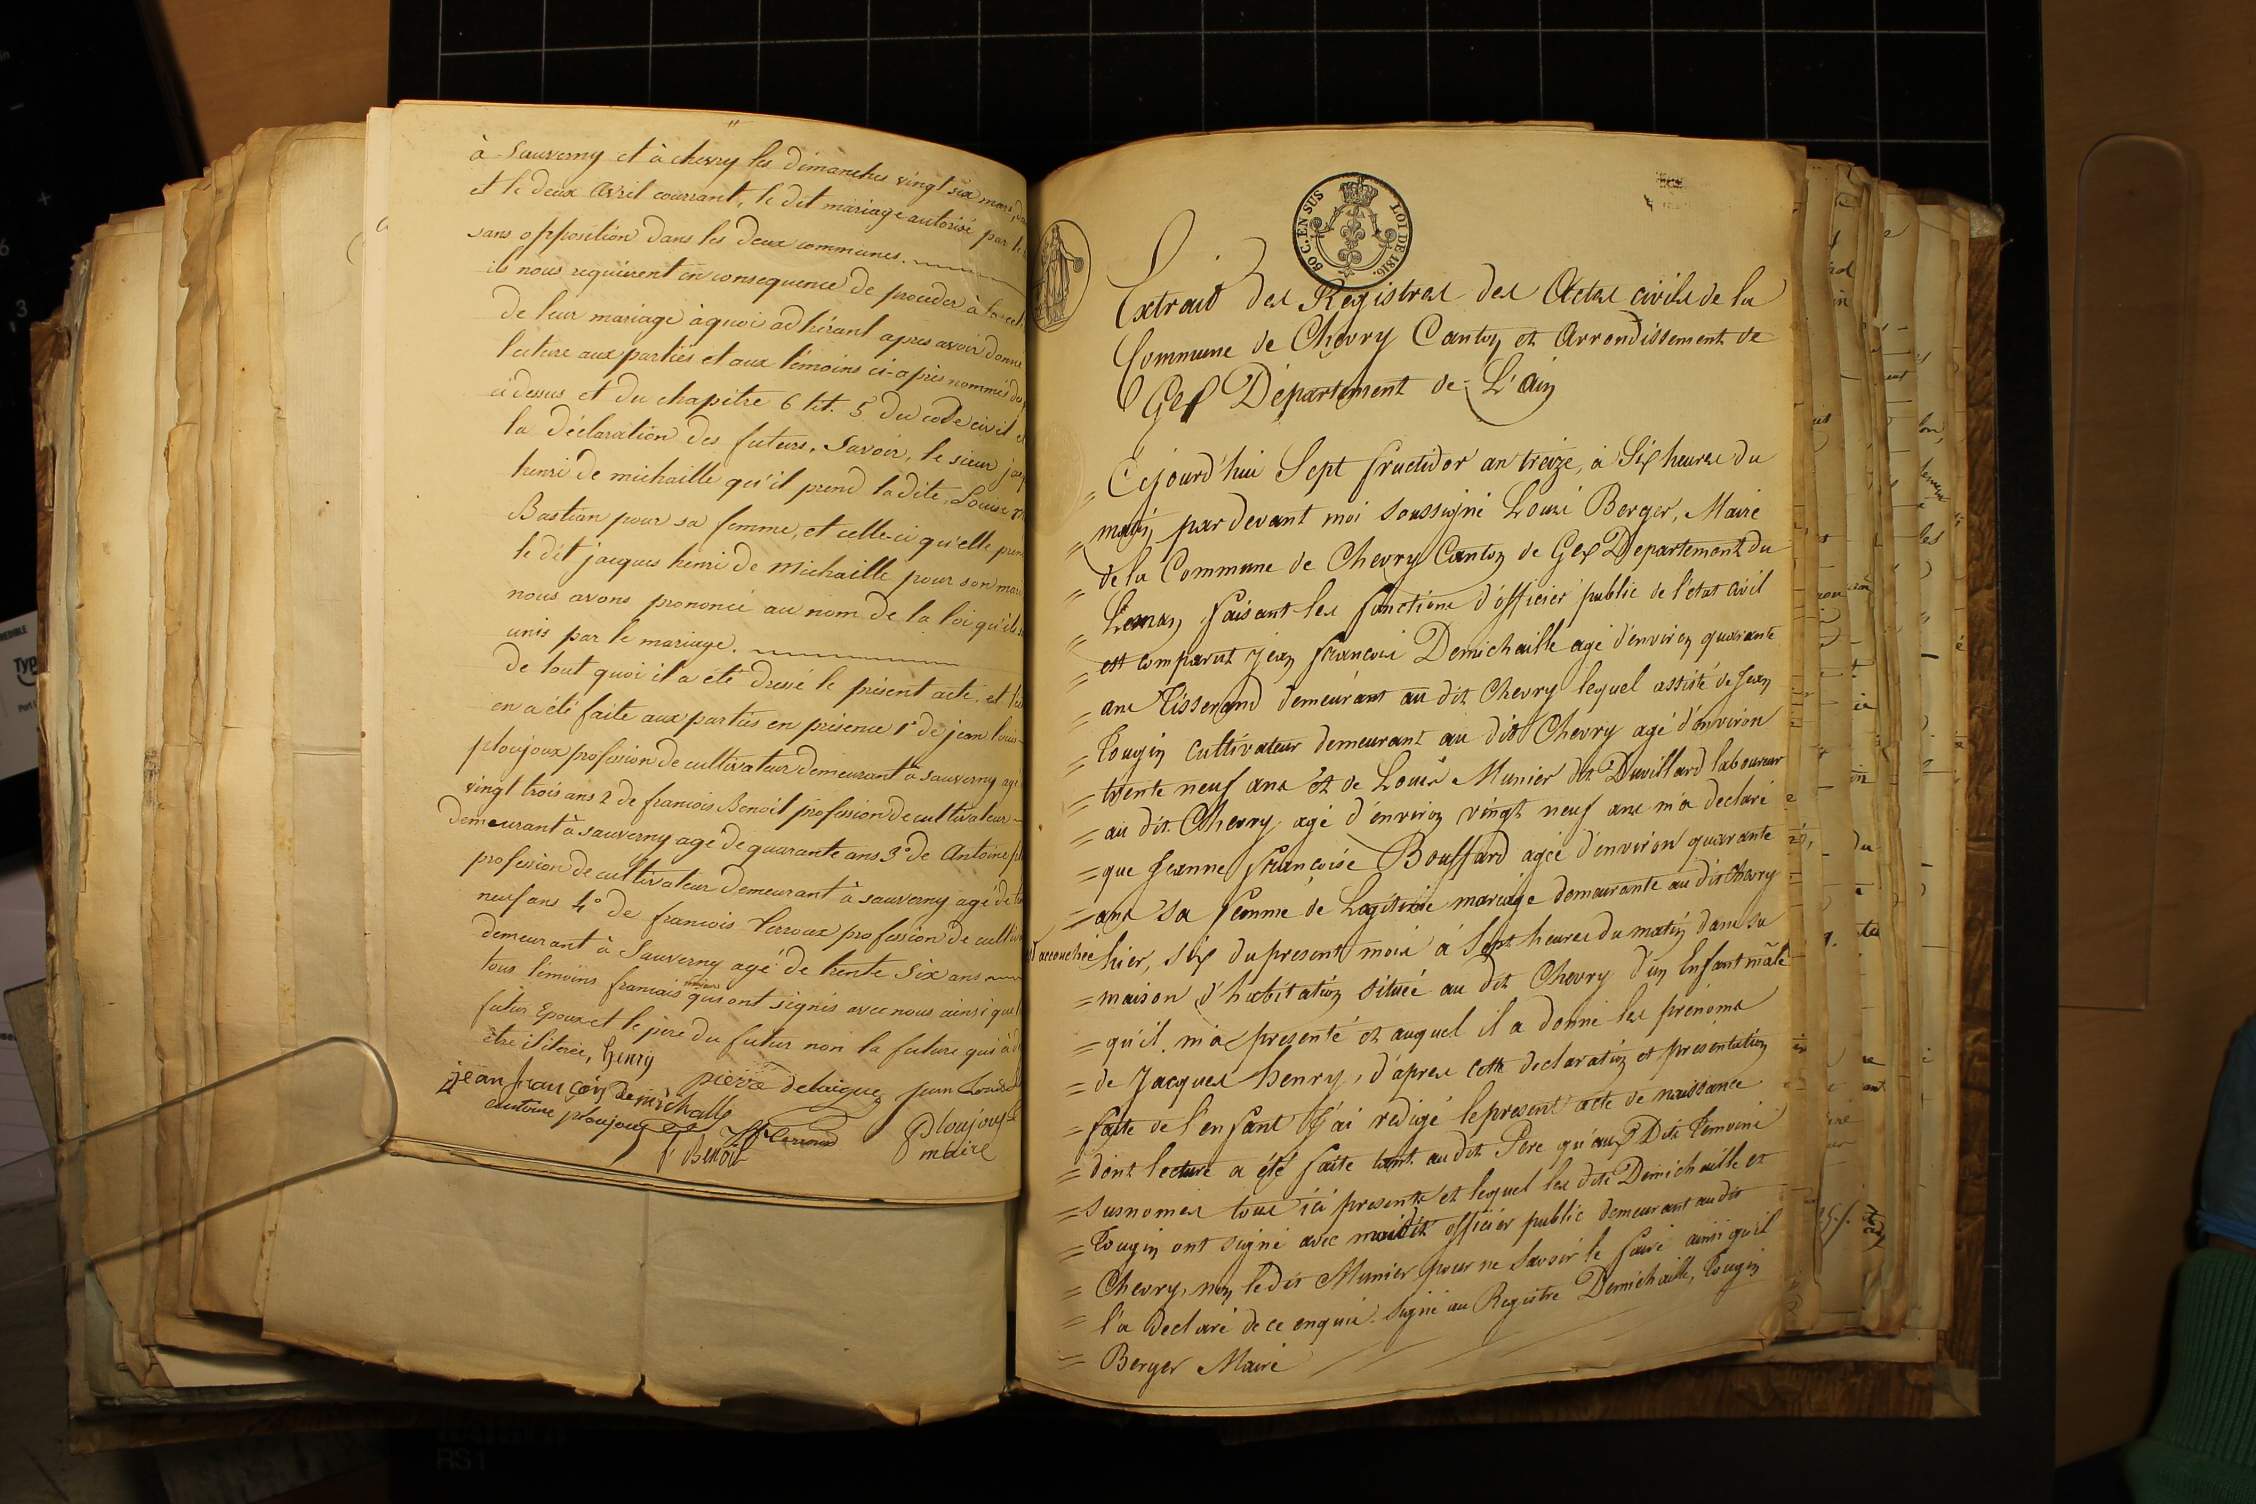 "
à Sauverny et à chevry les dimanches vingt six mars,
et le deux Avril courrant, le dit mariage autorisé par
sans opposition dans les deux communes.
ils nous requièrent en consequence de proceder à
de leur mariage à quoi adhérant apres avoir donné
lecture aux parties et aux témoins ci-après nommés
ci dessus et du chapitre 6 tit. 5 du code civil
la déclaration des futurs, Savoir, le sieur
henri de michaille qu'il prend ladite Louise
Bastian pour sa femme, et celle-ci qu'elle
le dit jacques henri De Michaille pour son
nous avons prononcé au nom de la loi
unis par le mariage.
De tout quoi il a été dressé le présent acte, et
en a été faite aux parties en présence 1° de jean
ploujoux profession de cultivateur demeurant à sauverny
vingt trois ans 2 de francois Benoit profession de cultivateur
demeurant à sauverny agé de quarante ans 3° de Antoine
profession de cultivateur demeurant à sauverny agé de
neuf ans 4° de francois Perroux profession de
demeurant à Sauverny agé de trente six ans
tous témoins francais qui ont signés avec nous ainsi que
futur Epoux et le père du futur non la future qui a
être iliterée, henry
jean françois Demichalle pierre delaigue jean Louis
antoine ploujoux
f Benoit Ploujoux
maire
50 C. EN SUS LOI DE 1816.
Extrait des Registres des Actes civils de la
Commune de Chevry Canton et Arrondissement de
Gex Département de L'ain
= Cejourd'hui Sept fructidor an treize, à Six heures du
= matin pardevant moi soussigné Louis Berger, Maire
= de la Commune de Chevry Canton de Gex Departement du
= Leman faisant les fonctions d'officier public de l'etat civil
= est comparut jean francois Demichaille agé d'environ quarante
= ans Tisserand demeurant au dit Chevry lequel assisté de Jean
= Tougin cultivateur demeurant au dit Chevry agé d'environ
= trente neuf ans et de Louis Munier dit Duvillard laboureur
= au dit Chevry agé d'environ vingt neuf ans m'a declaré
= que Jeanne françoise Bouffard agée d'environ quarante
= ans sa femme de Legitime mariage demeurante au dit Chevry
d'accouchée hier, six du present mois à Sept heures du matin dans sa
= maison d'habitation située au dit Chevry d'un Enfant mâle
= qu'il m'a presenté et auquel il a donné les prenoms
= de Jacques henry, d'après cette declaration et presentation
= faite de l'enfant J'ai redigé le present acte de naissance
= dont lecture a été faite tant au dit Pere qu'aux Dits Temoins
= susnomés tous ici presents et lequel les dits Demichaille et
= Tougin ont signé avec moidit officier public demeurant au dit
= Chevry, non ledit Munier pour ne savoir le faire ainsi qu'il
= l'a declaré de ce enquis. signé au Registre Demichaille, Tougin
= Berger Maire